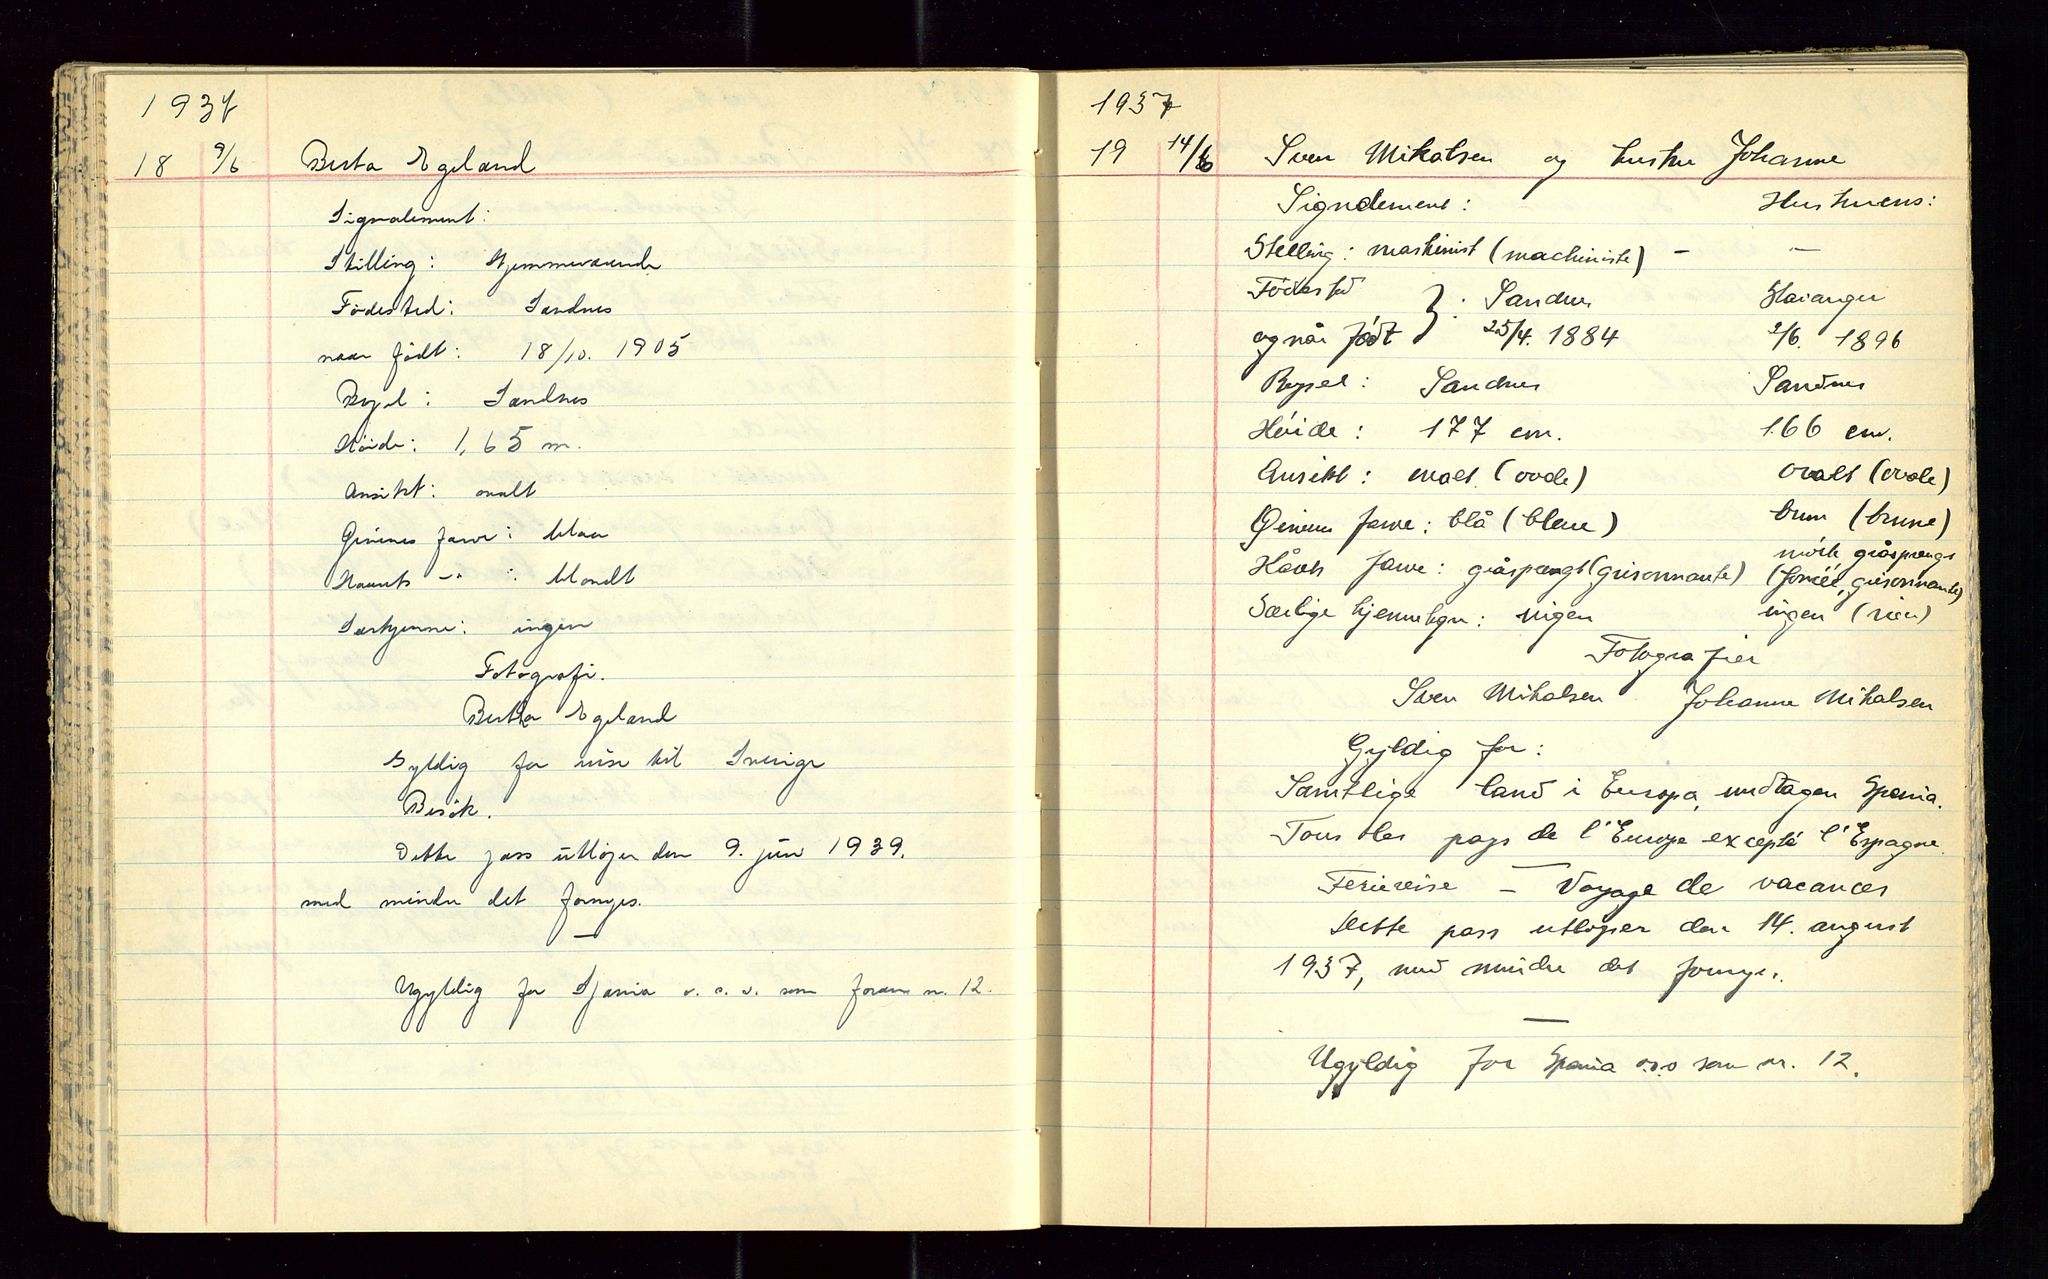 1937
18 9/6 Berta Egeland
Signalement:
Stilling: Hjemmeværende
Fødested: Sandnes
naar født: 18/10. 1905
Bopel: Sandnes
Höide: 1,65 m.
Ansikt: ovalt
Öinenes farve: blaa
Haarets -"- : blondt
Særkjenne: ingen
Fotografi.
Berta Egeland
Gyldig for reise til Sverige
Besök.
Dette pass utløper den 9. juni 1939.
med mindre det fornyes.
—
Ugyldig for Spania o. s. v. som foran nr. 12.
1937
19 14/6 Sven Mikalsen og hustru Johanne
Signalement: Hustruens:
Stilling: maskinist (machiniste) - -
Fødested } : Sandnes Stavanger
og når født 25/4. 1884 2/6. 1896
Bopel: Sandnes Sandnes
Høide: 177 cm. 166 cm.
Ansikt: ovalt (ovale) ovalt (ovale)
Øinenes farve: blå (bleue) brun (brune)
Hårets farve: gråsprengt (grisonnante) mörk gråsprengt
(foncée, grisonnante)
Særlige kjennetegn: ingen ingen (rien)
Fotografier
Sven Mikalsen Johanne Mikalsen
Gyldig for:
Samtlige land i Europa, undtagen Spania.
Tous les pays de l'Europe excepté l'Espagne.
Feriereise — Voyage de vacances
Dette pass utløper den 14. august
1937, med mindre det fornyes.
—
Ugyldig for Spania o.s.v som nr. 12.